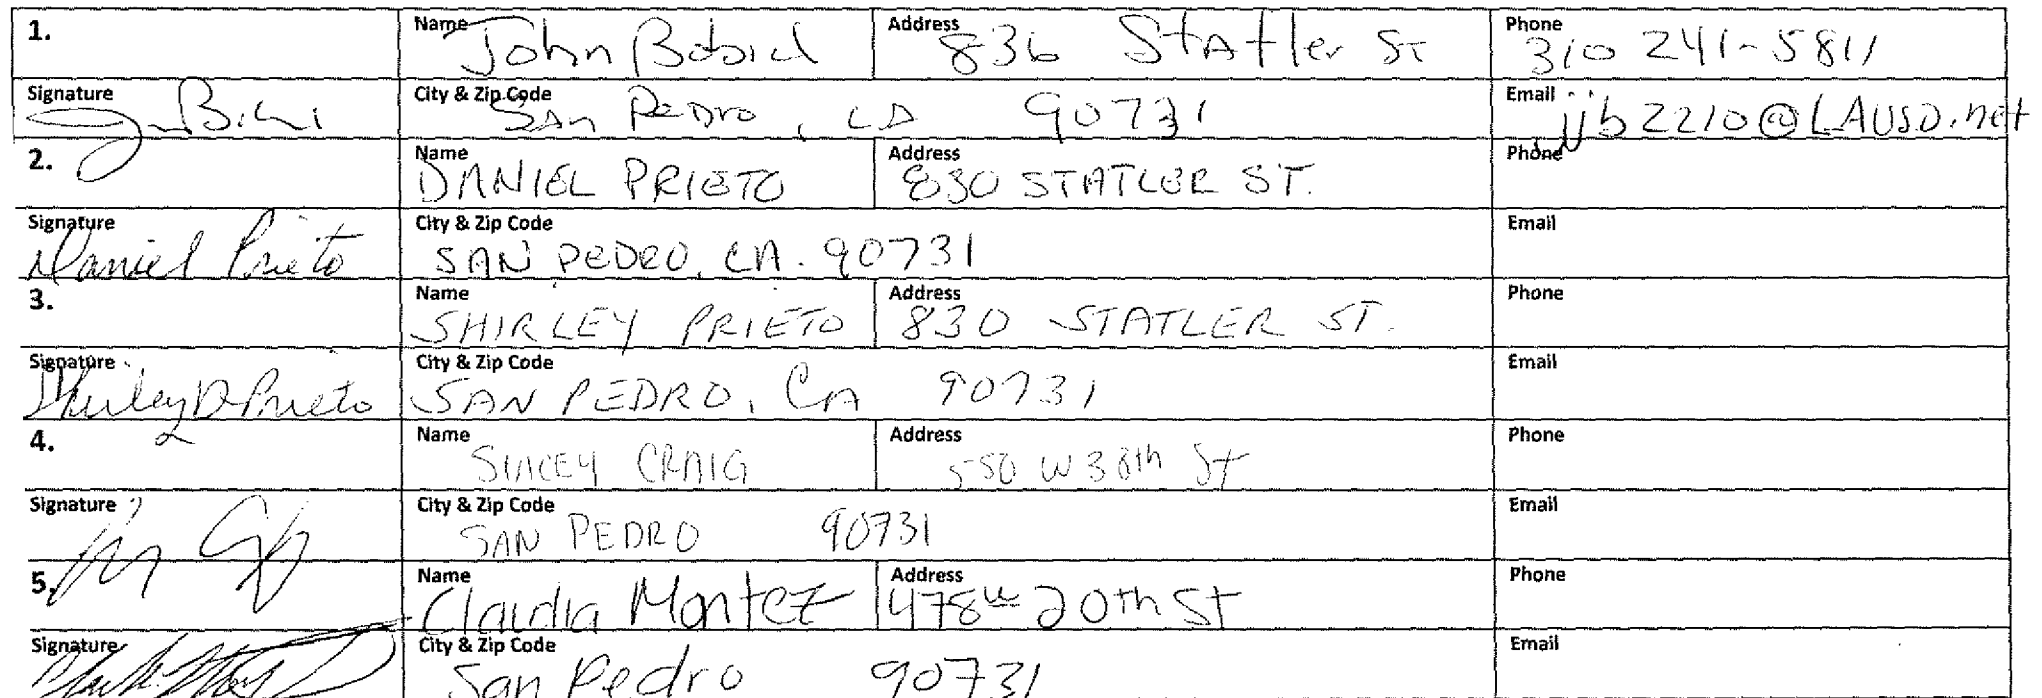 1. Name John Address 836 Statler St Phone 310 241-5811
Signature City & Zip Code San Pedro, CA 90731 Email jjb2210@LAUSD.net
2. Name DANIEL PRIETO Address 830 STATLER ST. Phone
Signature Daniel Prieto City & Zip Code SAN PEDRO, CA. 90731 Email
3. Name SHIRLEY PRIETO Address 830 STATLER ST. Phone
Signature Shirley D Prieto City & Zip Code SAN PEDRO, CA 90731 Email
4. Name STACEY CRAIG Address 550 W 38th St Phone
Signature City & Zip Code SAN PEDRO 90731 Email
5. Name Claudia Montez Address 478 W 20th St Phone
Signature City & Zip Code San Pedro 90731 Email